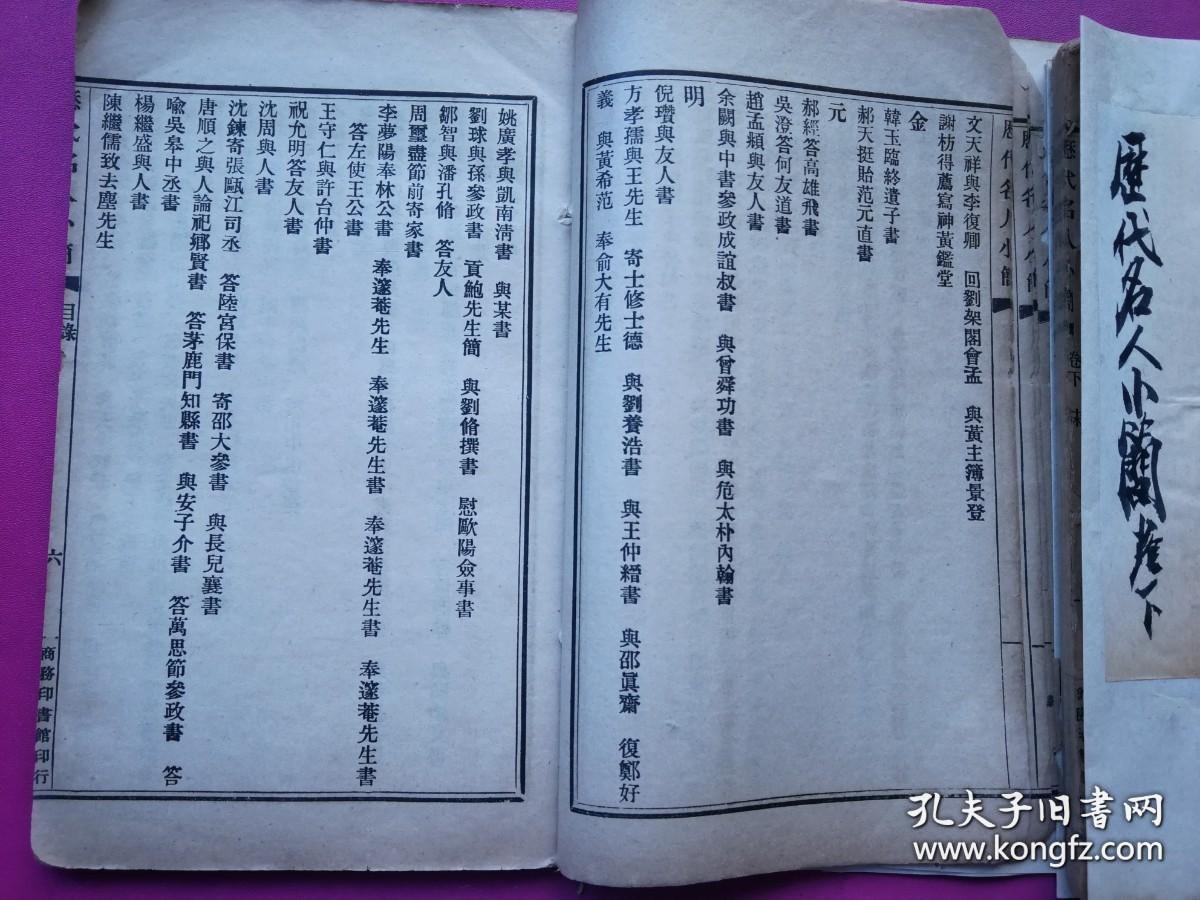 歷代名人小簡卷下
文天祥與李復卿　回劉架閣會孟　與黃主簿景登
謝枋得薦寫神黃鑑堂
金
韓玉臨終遺子書
郝天挺貽范元直書
元
郝經答高雄飛書
吳澄答何友道書
趙孟頫與友人書
余闕與中書參政成誼叔書　與曾舜功書　與危太朴內翰書
明
倪瓚與友人書
方孝孺與王先生　寄士修士德　與劉養浩書　與王仲縉書　與邵眞齋　復鄭好
義　與黃希范　奉俞大有先生
姚廣孝與凱南清書　與某書
劉球與孫參政書　貢鮑先生簡　與劉脩撰書　慰歐陽僉事書
鄒智與潘孔脩　答友人
周璽盡節前寄家書
李夢陽奉林公書　奉邃菴先生　奉邃菴先生書　奉邃菴先生書　奉邃菴先生書
答左使王公書
王守仁與許台仲書
祝允明答友人書
沈周與人書
沈鍊寄張甌江司丞　答陸宮保書　寄邵大參書　與長兒襄書
唐順之與人論祀鄉賢書　答茅鹿門知縣書　與安子介書　答萬思節參政書　答
喩吳皋中丞書
楊繼盛與人書
陳繼儒致去塵先生
目錄
六
商務印書館印行
孔夫子旧书网
www.kongfz.com